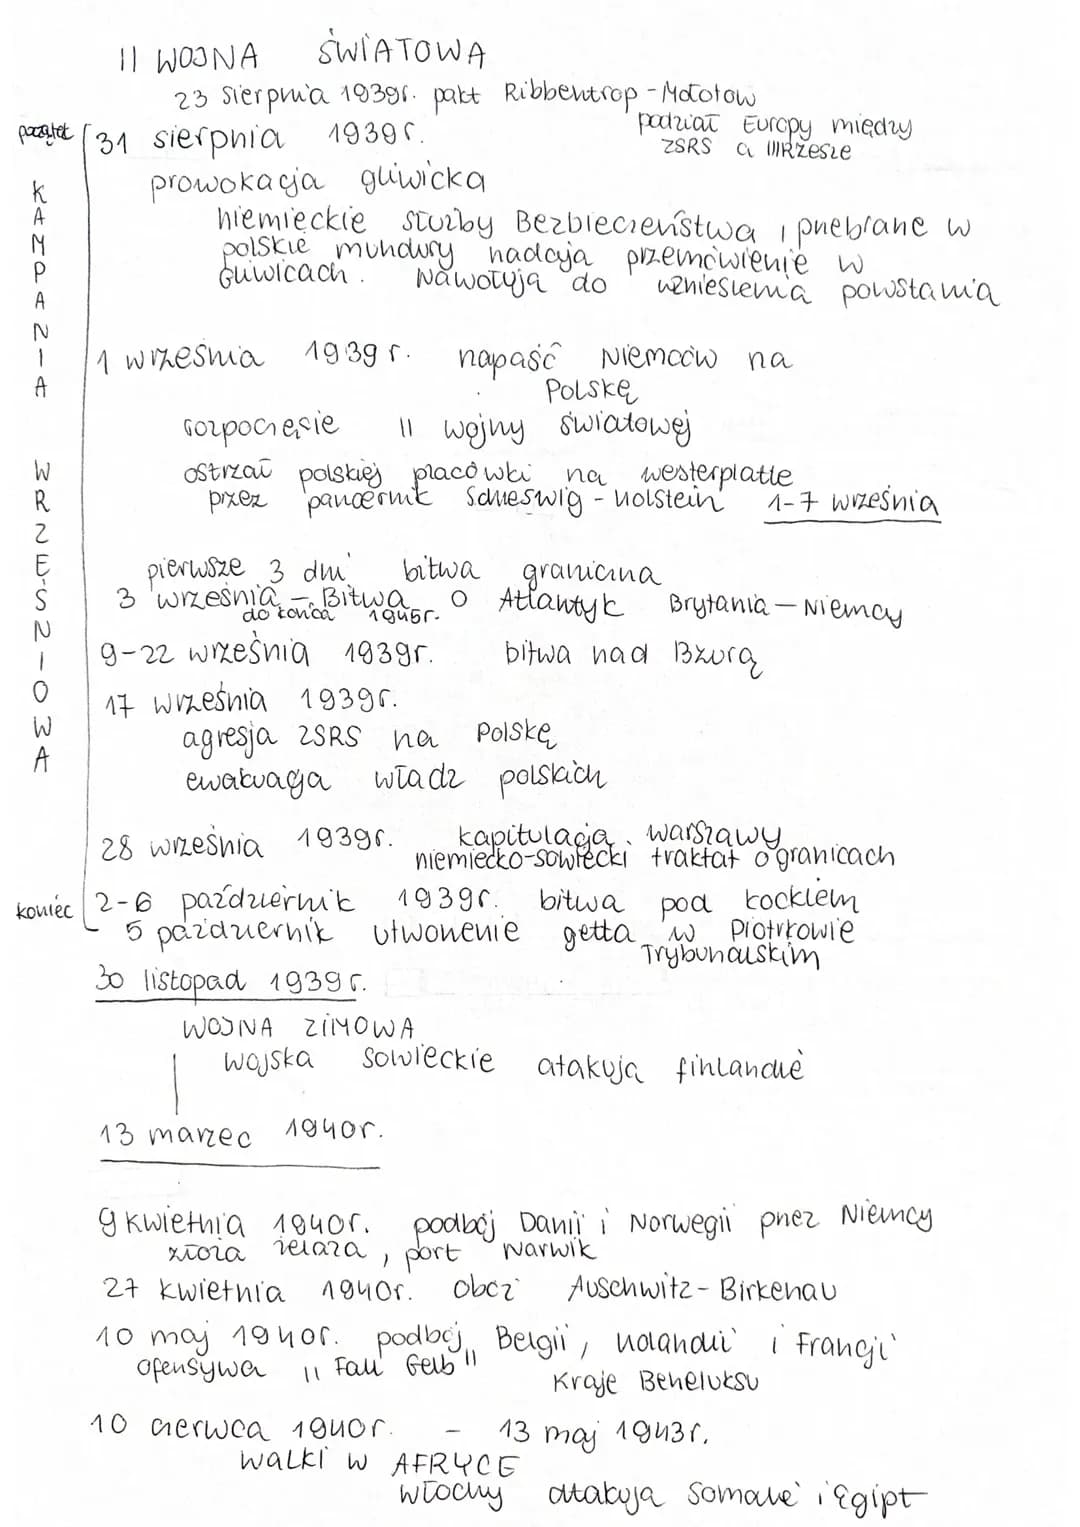 II WOJNA ŚWIATOWA
23 sierpnia 1939r. pakt Ribbentrop - Mołotow
podział Europy między
ZSRS a III Rzesze
początek 31 sierpnia 1939r.
prowokacja gliwicka
niemieckie służby Bezpieczeństwa, przebrane w
polskie mundury nadają przemówienie w
Gliwicach. Nawołują do wzniesienia powstania
KAMPANIA WRZEŚNIOWA
1 września 1939r. napaść Niemców na
Polskę
rozpoczęcie II wojny światowej
ostrzał polskiej placówki na westerplatte
przez pancernik Schleswig - Holstein 1-7 września
pierwsze 3 dni bitwa graniczna
3 września - Bitwa o Atlantyk Brytania - Niemcy
do końca 1945r.
9-22 września 1939r. bitwa nad Bzurą
17 września 1939r.
agresja ZSRS na Polskę
ewakuacja władz polskich
28 września 1939r. kapitulacja warszawy
niemiecko-sowiecki traktat o granicach
koniec 2-6 październik 1939r. bitwa pod kockiem
5 październik utworzenie getta w Piotrkowie
Trybunalskim
30 listopad 1939r.
WOJNA ZIMOWA
wojska sowieckie atakują finlandię
13 marzec 1940r.
9 kwietnia 1940r. podbój Danii i Norwegii przez Niemcy
złoża żelaza, port Narwik
27 kwietnia 1940r. obóz Auschwitz - Birkenau
10 maj 1940r. podbój Belgii, Holandii i Francji
ofensywa "Fall Gelb"
Kraje Beneluksu
10 czerwca 1940r. - 13 maj 1943r.
walki w AFRYCE
włochy atakują Somalię i Egipt